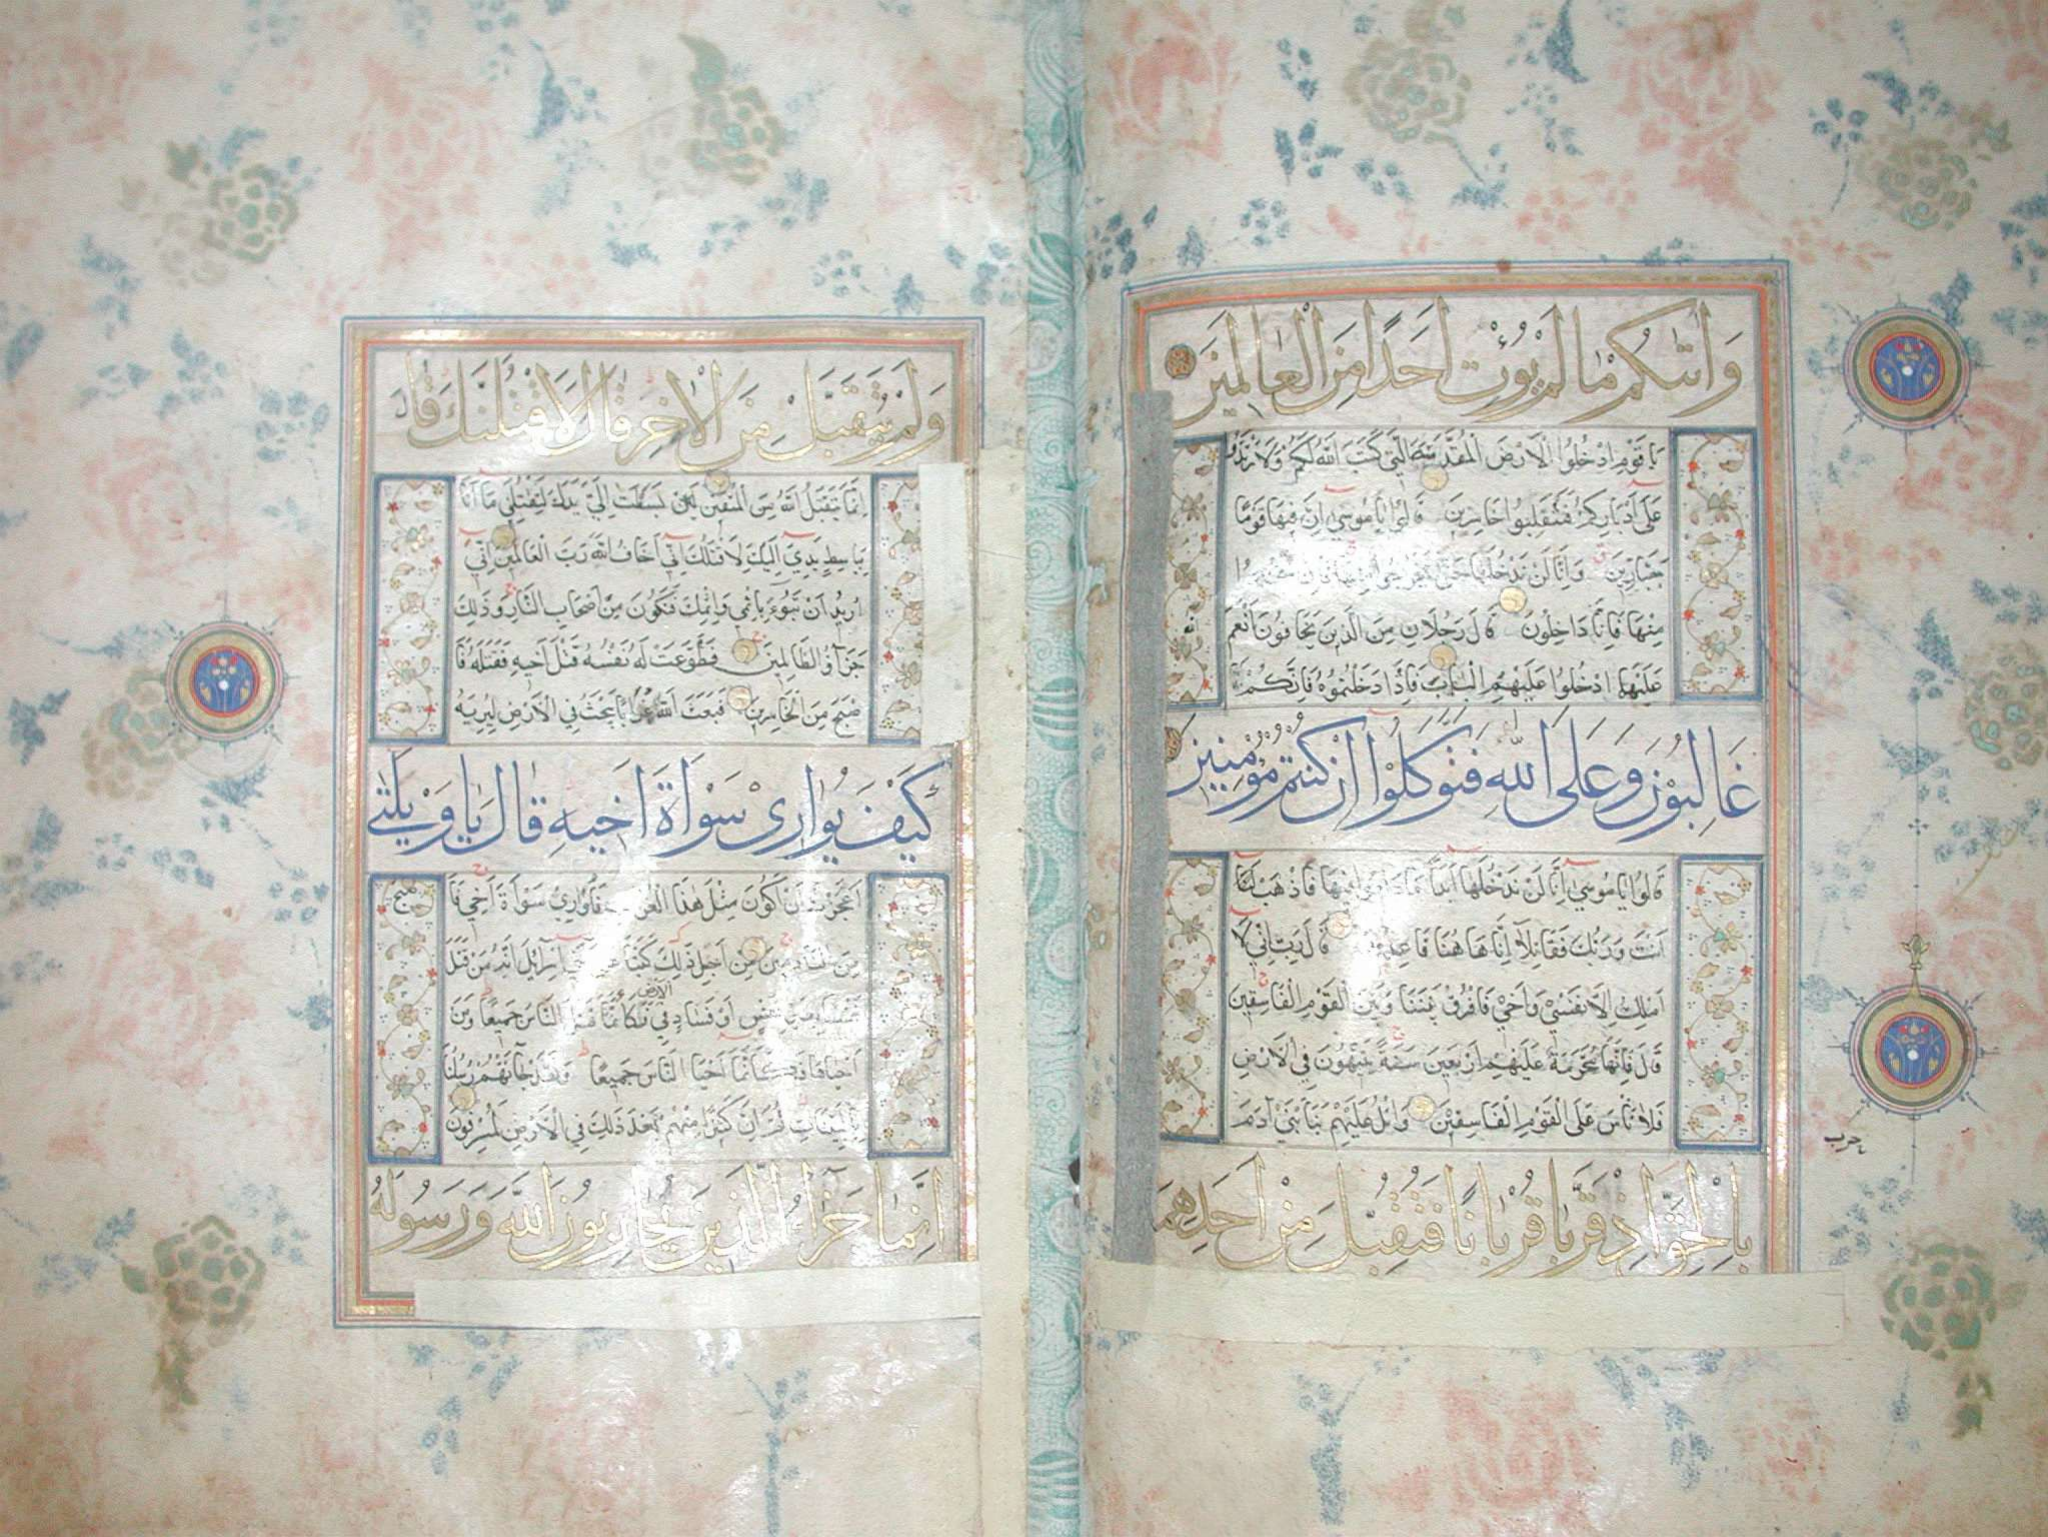 وَاٰتٰىكُمْ مٰا لَمْ يُؤْتِ اَحَدًا مِنَ الْعٰالَمِينَ
يَا قَوْمِ ادْخُلُوا الْاَرْضَ الْمُقَدَّسَةَ الَّتِي كَتَبَ اللّٰهُ لَكُمْ وَلَا تَرْتَدُّوا
عَلَى اَدْبَارِكُمْ فَتَنْقَلِبُوا خَاسِرِينَ قَالُوا يَا مُوسٰى اِنَّ فِيهَا قَوْمًا
جَبَّارِينَ وَاِنَّا لَنْ نَدْخُلَهَا حَتَّى يَخْرُجُوا مِنْهَا فَاِنْ يَخْرُجُوا
مِنْهَا فَاِنَّا دَاخِلُونَ قَالَ رَجُلَانِ مِنَ الَّذِينَ يَخَافُونَ اَنْعَمَ
عَلَيْهِمَا ادْخُلُوا عَلَيْهِمُ الْبَابَ فَاِذَا دَخَلْتُمُوهُ فَاِنَّكُمْ
غَالِبُونَ وَعَلَى اللّٰهِ فَتَوَكَّلُوا اِنْ كُنْتُمْ مُؤْمِنِينَ
قَالُوا يَا مُوسٰى اِنَّا لَنْ نَدْخُلَهَا اَبَدًا مَا دَامُوا فِيهَا فَاذْهَبْ
اَنْتَ وَرَبُّكَ فَقَاتِلَا اِنَّا هَا هُنَا قَاعِدُونَ قَالَ رَبِّ اِنِّي لَا
اَمْلِكُ اِلَّا نَفْسِي وَاَخِي فَافْرُقْ بَيْنَنَا وَبَيْنَ الْقَوْمِ الْفَاسِقِينَ
قَالَ فَاِنَّهَا مُحَرَّمَةٌ عَلَيْهِمْ اَرْبَعِينَ سَنَةً يَتِيهُونَ فِي الْاَرْضِ
فَلَا تَاْسَ عَلَى الْقَوْمِ الْفَاسِقِينَ وَاتْلُ عَلَيْهِمْ نَبَاَ ابْنَيْ آدَمَ
بِالْحَقِّ اِذْ قَرَّبَا قُرْبَانًا فَتُقُبِّلَ مِنْ اَحَدِهِمَا
حزب
وَلَمْ يُتَقَبَّلْ مِنَ الْاٰخَرِ قَالَ لَاَقْتُلَنَّكَ قَالَ
اِنَّمَا يَتَقَبَّلُ اللّٰهُ مِنَ الْمُتَّقِينَ لَئِنْ بَسَطْتَ اِلَيَّ يَدَكَ لِتَقْتُلَنِي مَا اَنَا
بِبَاسِطٍ يَدِيَ اِلَيْكَ لِاَقْتُلَكَ اِنِّي اَخَافُ اللّٰهَ رَبَّ الْعَالَمِينَ اِنِّي
اُرِيدُ اَنْ تَبُوءَ بِاِثْمِي وَاِثْمِكَ فَتَكُونَ مِنْ اَصْحَابِ النَّارِ وَذٰلِكَ
جَزَاءُ الظَّالِمِينَ فَطَوَّعَتْ لَهُ نَفْسُهُ قَتْلَ اَخِيهِ فَقَتَلَهُ فَا
صْبَحَ مِنَ الْخَاسِرِينَ فَبَعَثَ اللّٰهُ غُرَابًا يَبْحَثُ فِي الْاَرْضِ لِيُرِيَهُ
كَيْفَ يُوَارِي سَوْاَةَ اَخِيهِ قَالَ يَا وَيْلَتٰى
اَعَجَزْتُ اَنْ اَكُونَ مِثْلَ هٰذَا الْغُرَابِ فَاُوَارِيَ سَوْاَةَ اَخِي فَاَ
صبح
مِنَ النَّادِمِينَ مِنْ اَجْلِ ذٰلِكَ كَتَبْنَا عَلَى بَنِي اِسْرَائِيلَ اَنَّهُ مَنْ قَتَلَ
نَفْسًا بِغَيْرِ نَفْسٍ اَوْ فَسَادٍ فِي الارض فَكَاَنَّمَا قَتَلَ النَّاسَ جَمِيعًا وَمَنْ
اَحْيَاهَا فَكَاَنَّمَا اَحْيَا النَّاسَ جَمِيعًا وَلَقَدْ جَاءَتْهُمْ رُسُلُنَا
بِالْبَيِّنَاتِ ثُمَّ اِنَّ كَثِيرًا مِنْهُمْ بَعْدَ ذٰلِكَ فِي الْاَرْضِ لَمُسْرِفُونَ
اِنَّمَا جَزَاءُ الَّذِينَ يُحَارِبُونَ اللّٰهَ وَرَسُولَهُ